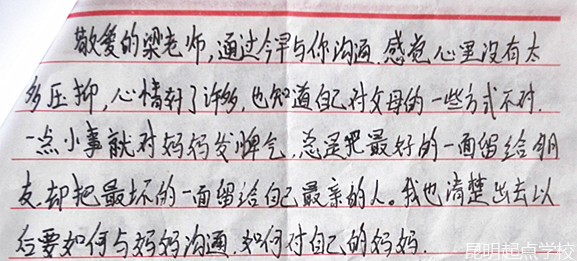 敬爱的梁老师,通过今早与你沟通,感觉心里没有太
多压抑,心情好了许多,也知道自己对父母的一些方式不对.
一点小事就对妈妈发脾气,总是把最好的一面留给朋
友,却把最坏的一面留给自己最亲的人。我也清楚出去以
后要如何与妈妈沟通,如何对自己的妈妈.
昆明起点学校